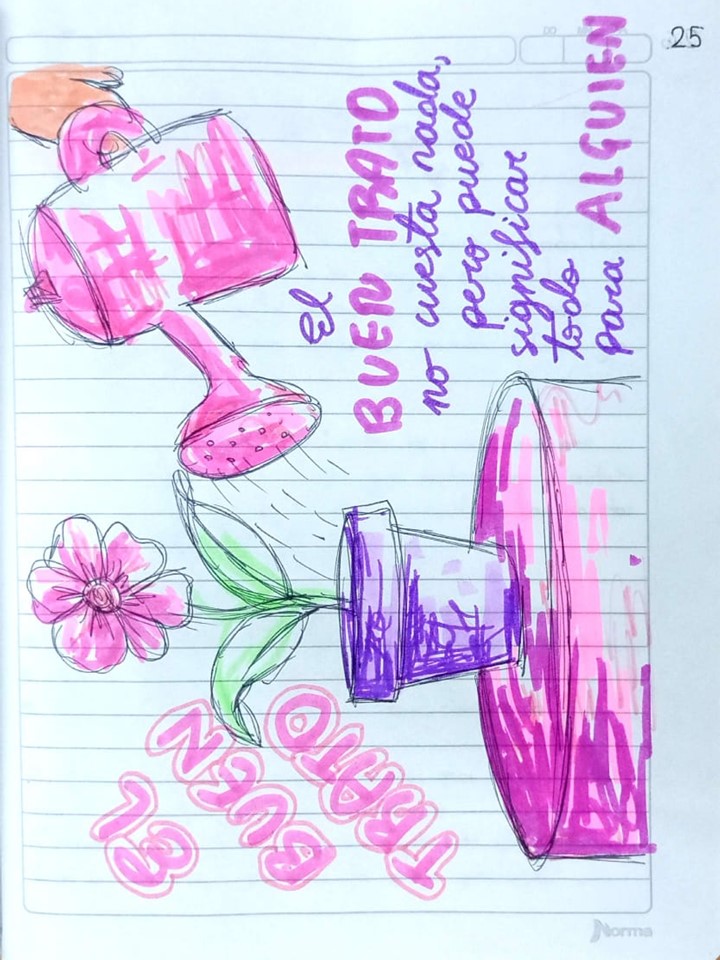 25
EL
BUEN
TRATO
El
BUEN TRATO
no cuesta nada,
pero puede
significar
todo
para ALGUIEN
Norma